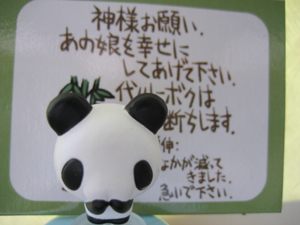 神様お願い.
あの娘を幸せに
してあげて下さい.
代 ボクは
断ちします.
伸:
なかが減って
きました.
急いで下さい.